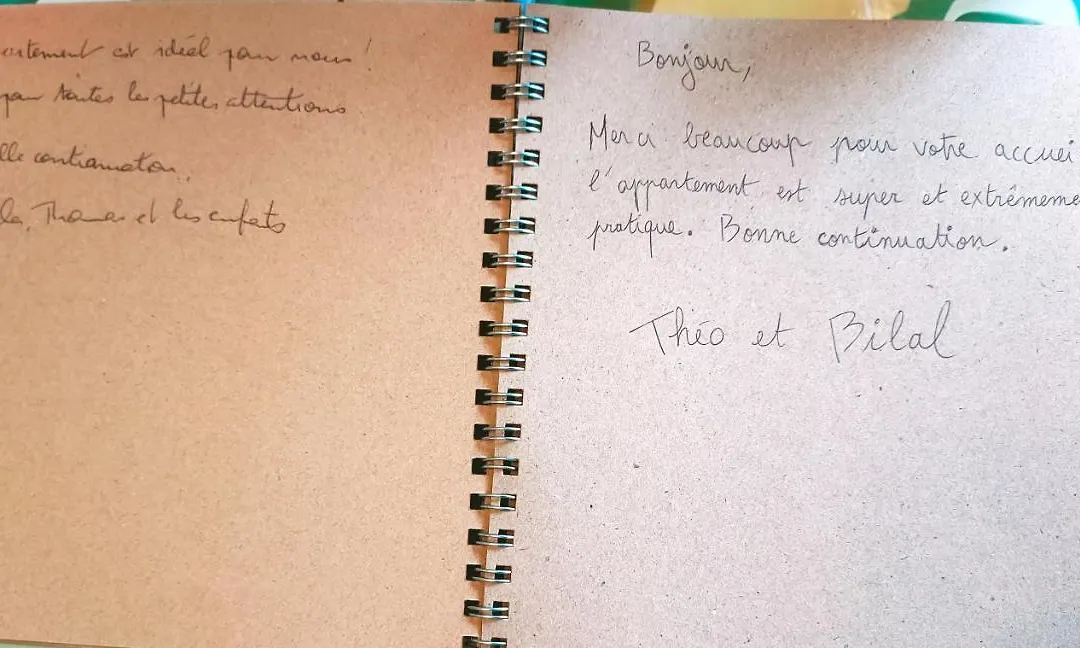 artement est idéal pour nous !
pour toutes les petites attentions
lle continuation,
la, Thomas et les enfants
Bonjour,
Merci beaucoup pour votre accuei
l'appartement est super et extrêmeme
pratique. Bonne continuation.
Théo et Bilal